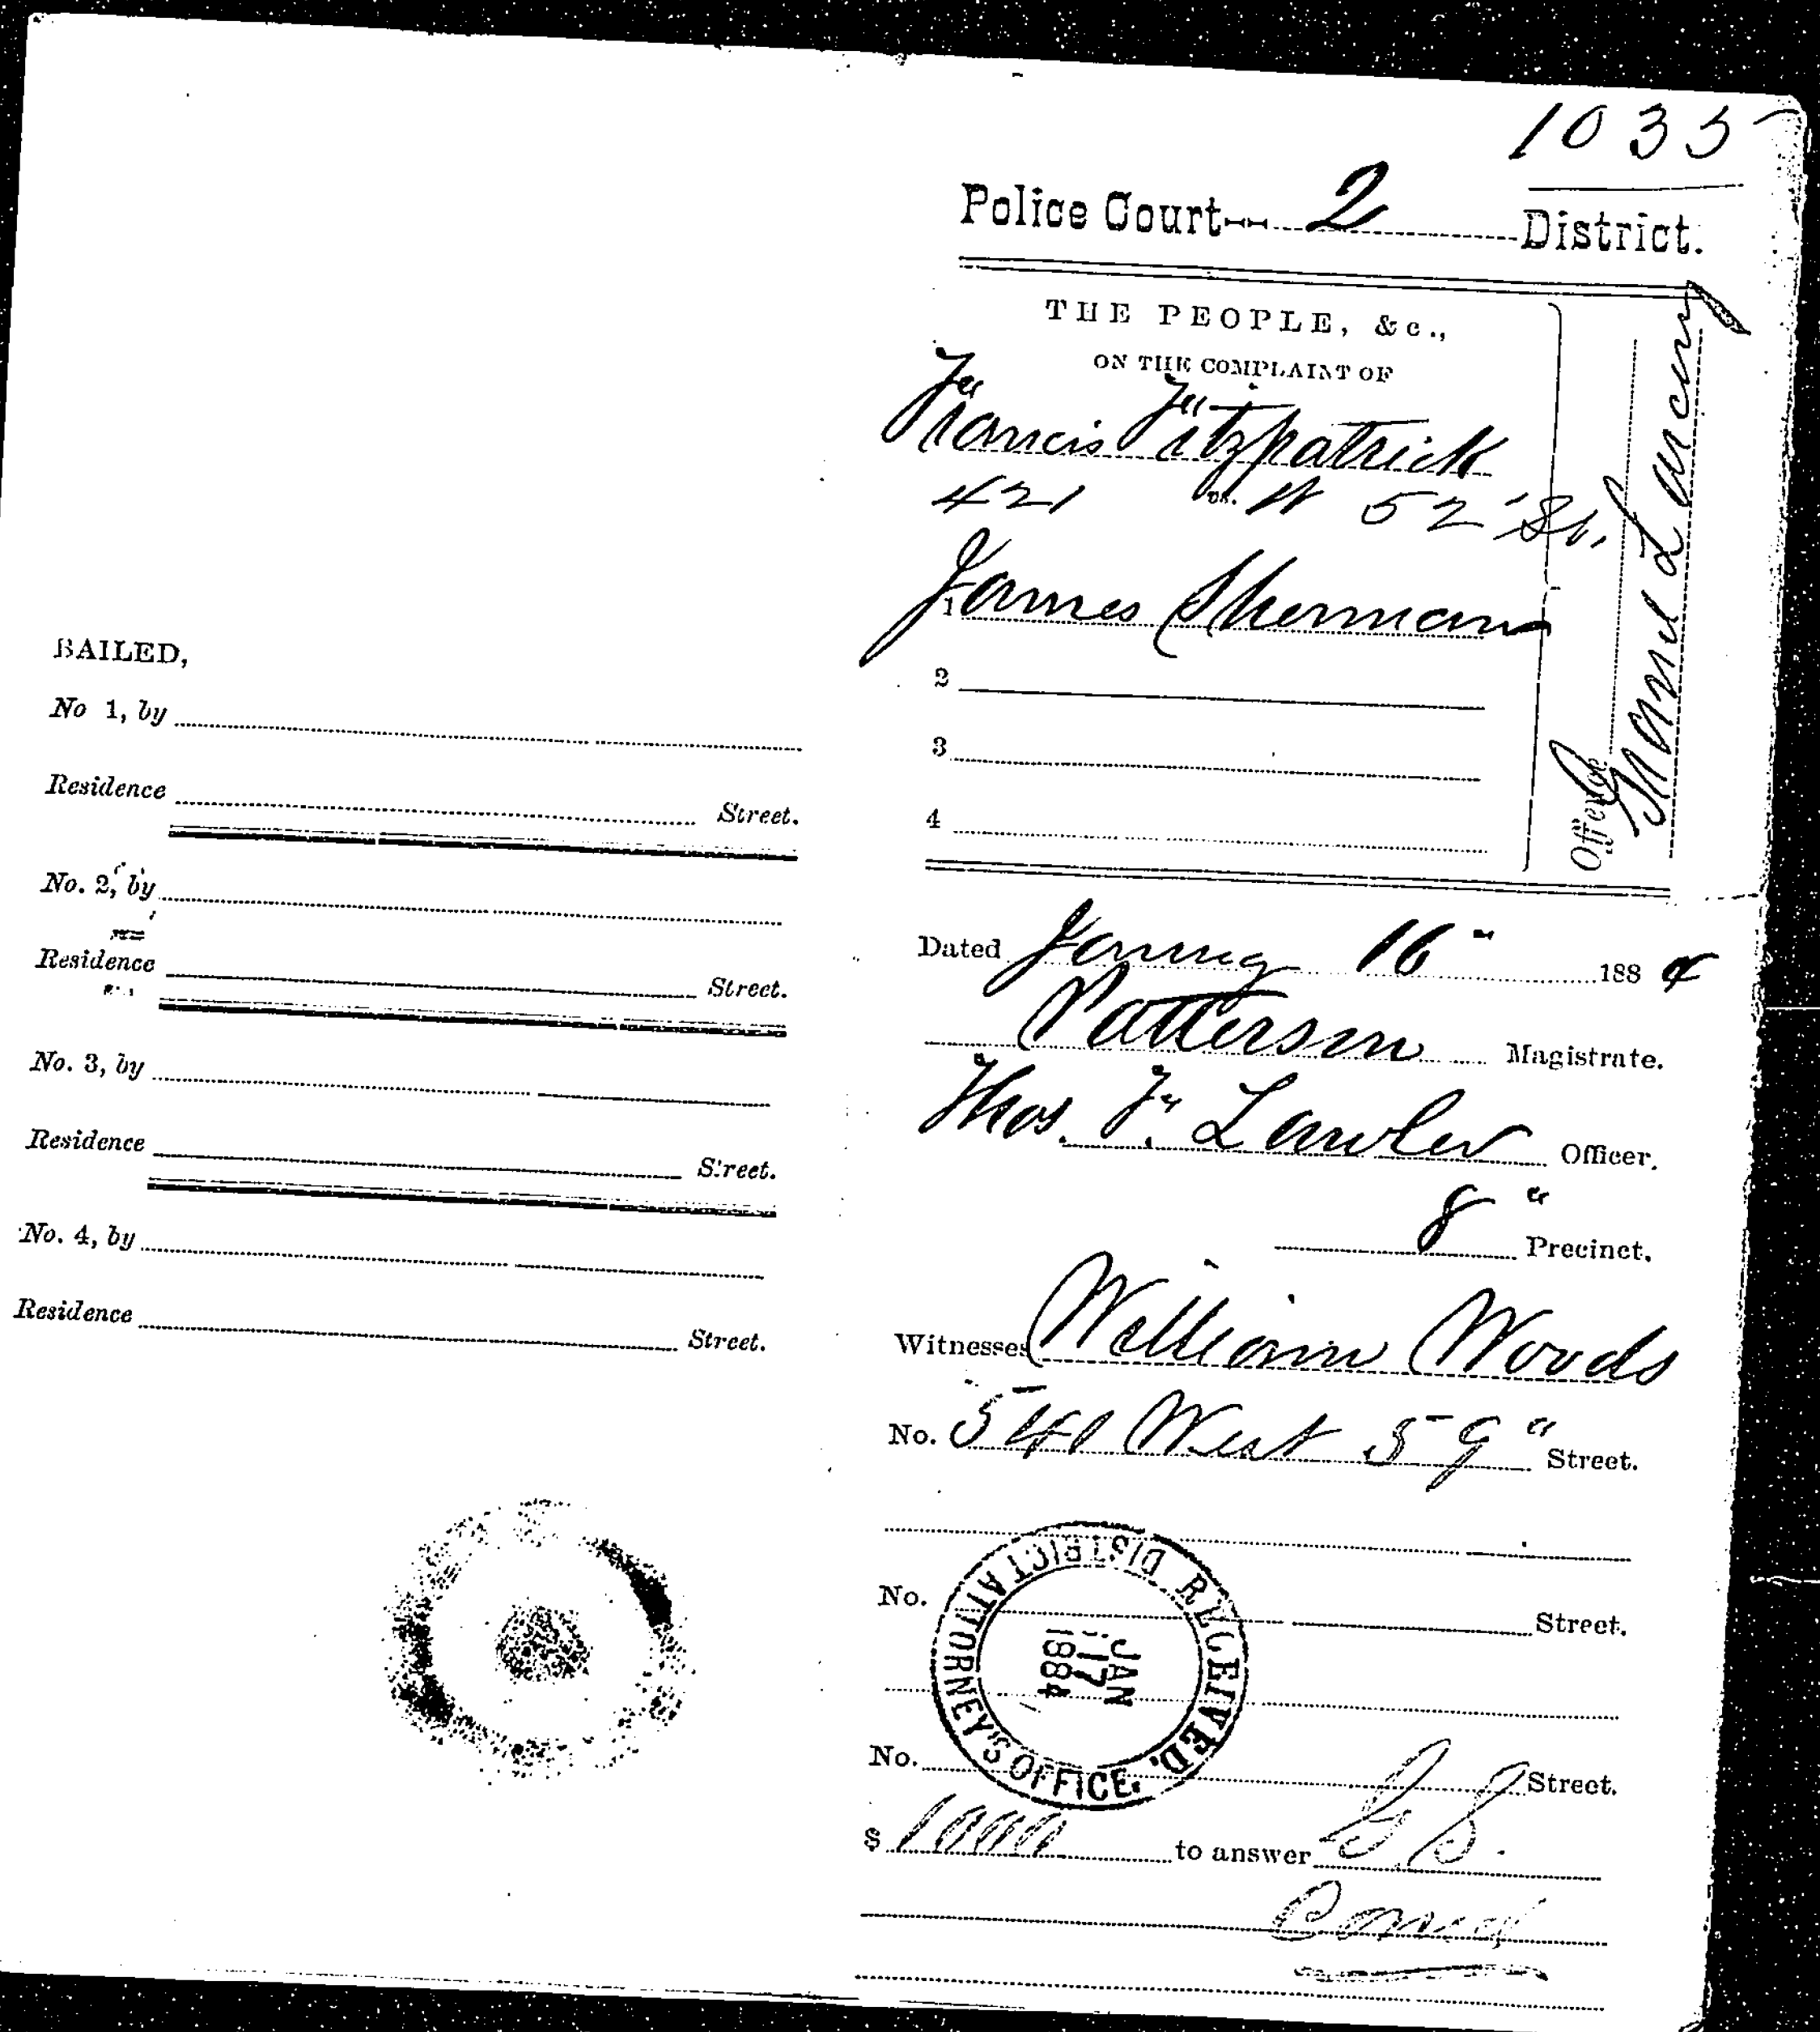 BAILED,
No 1, by
Residence Street.
No. 2, by
Residence Street.
No. 3, by
Residence Street.
No. 4, by
Residence Street.
1035
Police Court-- 2 District.
THE PEOPLE, &c.,
ON THE COMPLAINT OF
Francis Fitzpatrick
421 vs. W 52 St.
1 James Sherman
2
3
4
Offence Grand Larceny
Dated Jany 16" 1884
Patterson Magistrate.
Thos. F. Lawler Officer.
8" Precinct.
Witnesses William Woods
No. 541 West 59" Street.
No. Street.
RECEIVED.
JAN
17
1884
DISTRICT ATTORNEY'S OFFICE.
No. Street.
$ 1000 to answer G.S.
Comd